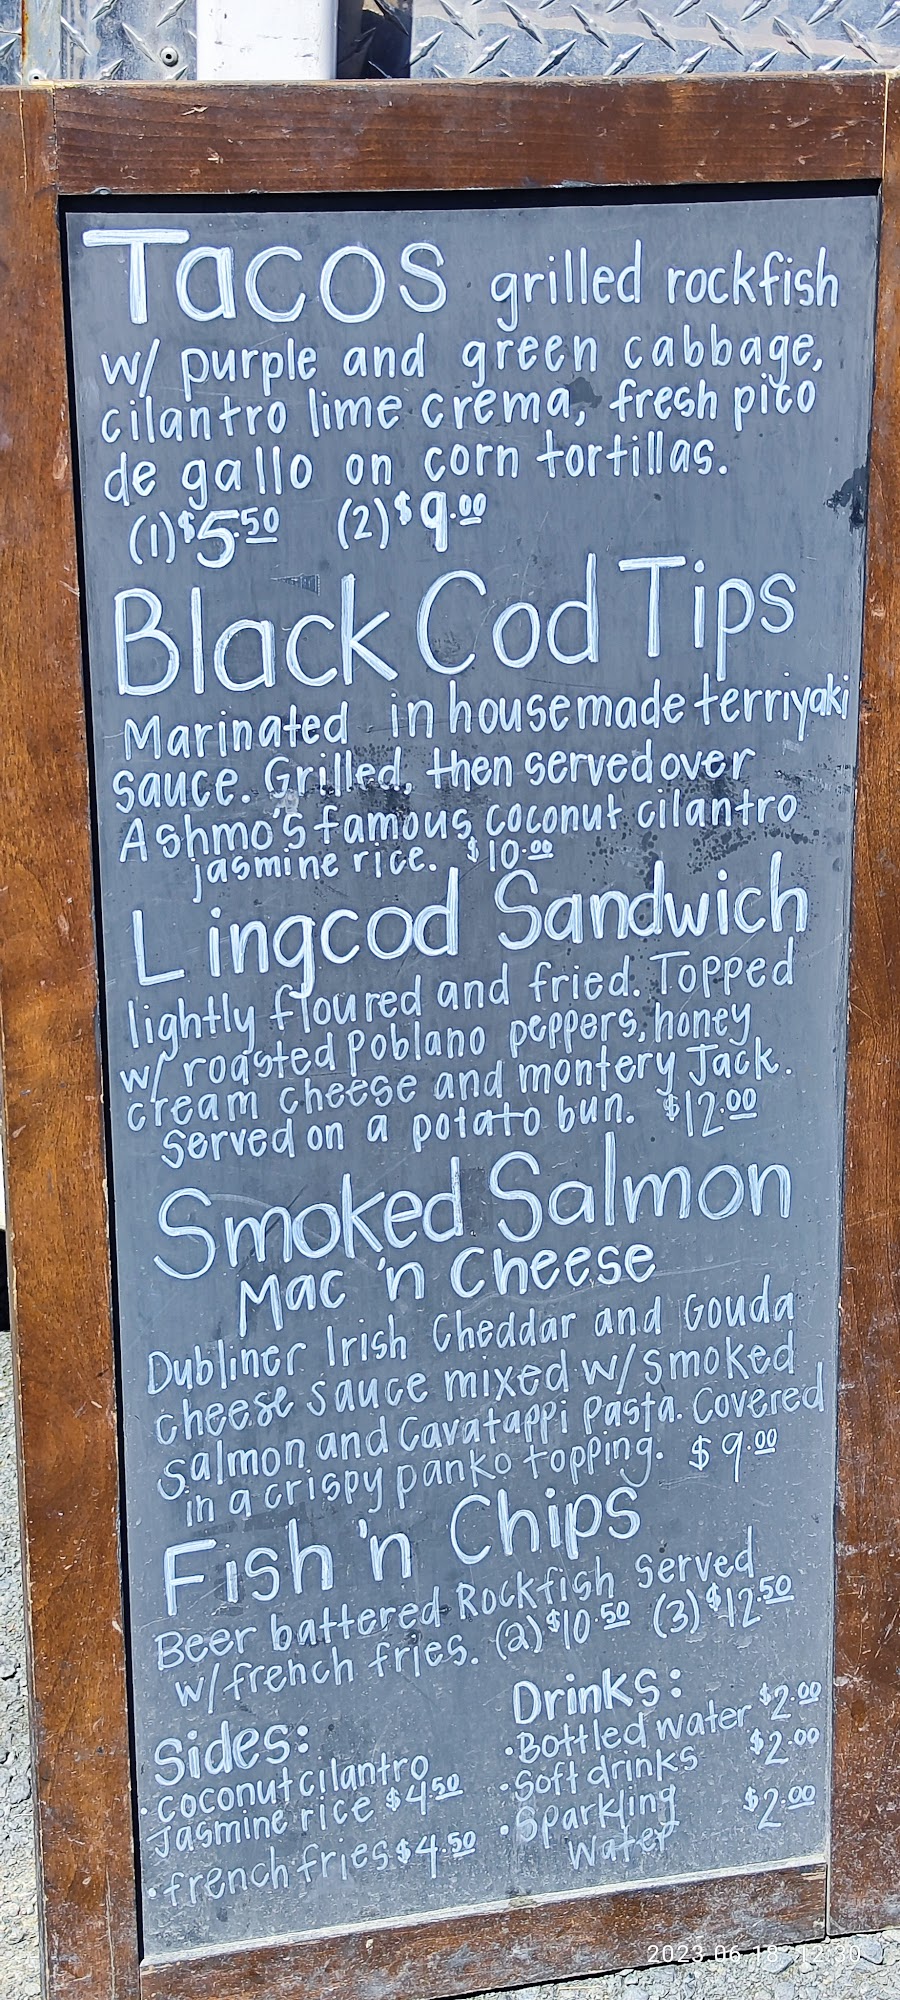 Tacos grilled rockfish
w/ purple and green cabbage,
cilantro lime crema, fresh pico
de gallo on corn tortillas.
(1) $5 50 (2) $9.00
Black Cod Tips
Marinated in housemade terriyaki
sauce. Grilled, then served over
Ashmo's famous coconut cilantro
jasmine rice. $10.00
Lingcod Sandwich
lightly floured and fried. Topped
w/ roasted Poblano peppers, honey
cream cheese and montery Jack.
Served on a potato bun. $12.00
Smoked Salmon
Mac 'n Cheese
Dubliner Irish Cheddar and Gouda
cheese sauce mixed w/ smoked
salmon and Cavatappi Pasta. Covered
in a crispy panko topping. $9.00
Fish 'n Chips
Beer battered Rockfish Served
w/ french fries. (2) $10.50 (3) $12.50
Sides:
• coconut cilantro
Jasmine rice $4.50
• french fries $4.50
Drinks:
• Bottled water $2.00
• Soft drinks $2.00
• Sparkling $2.00
Water
2023.06.18 12:30